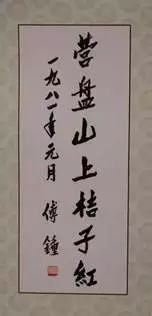 营盘山上桔子红
一九八一年元月
傅鍾